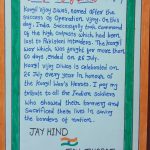 Kargil Vijay Diwas, named after the
success of Operation Vijay. On this
day, India successfully took command
of the high outposts which had been
lost to Pakistani intruders. The Kargil
War which was fought for more than
60 days, ended on 26 July.
Kargil Vijay Diwas is celebrated on
26 July every year in honour of
the Kargil War's Heroes. I pay my
tribute to all the Indian Soldiers
who showed their bravery and
sacrificed their lives in saving
the borders of nation.
JAY HIND